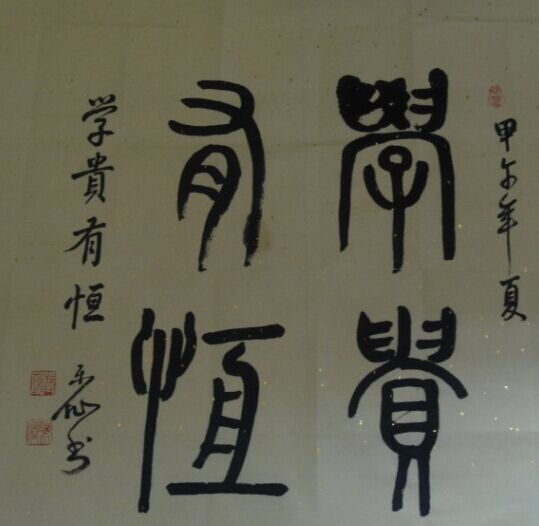 甲午年夏
學貴
有恒
学貴有恒
书